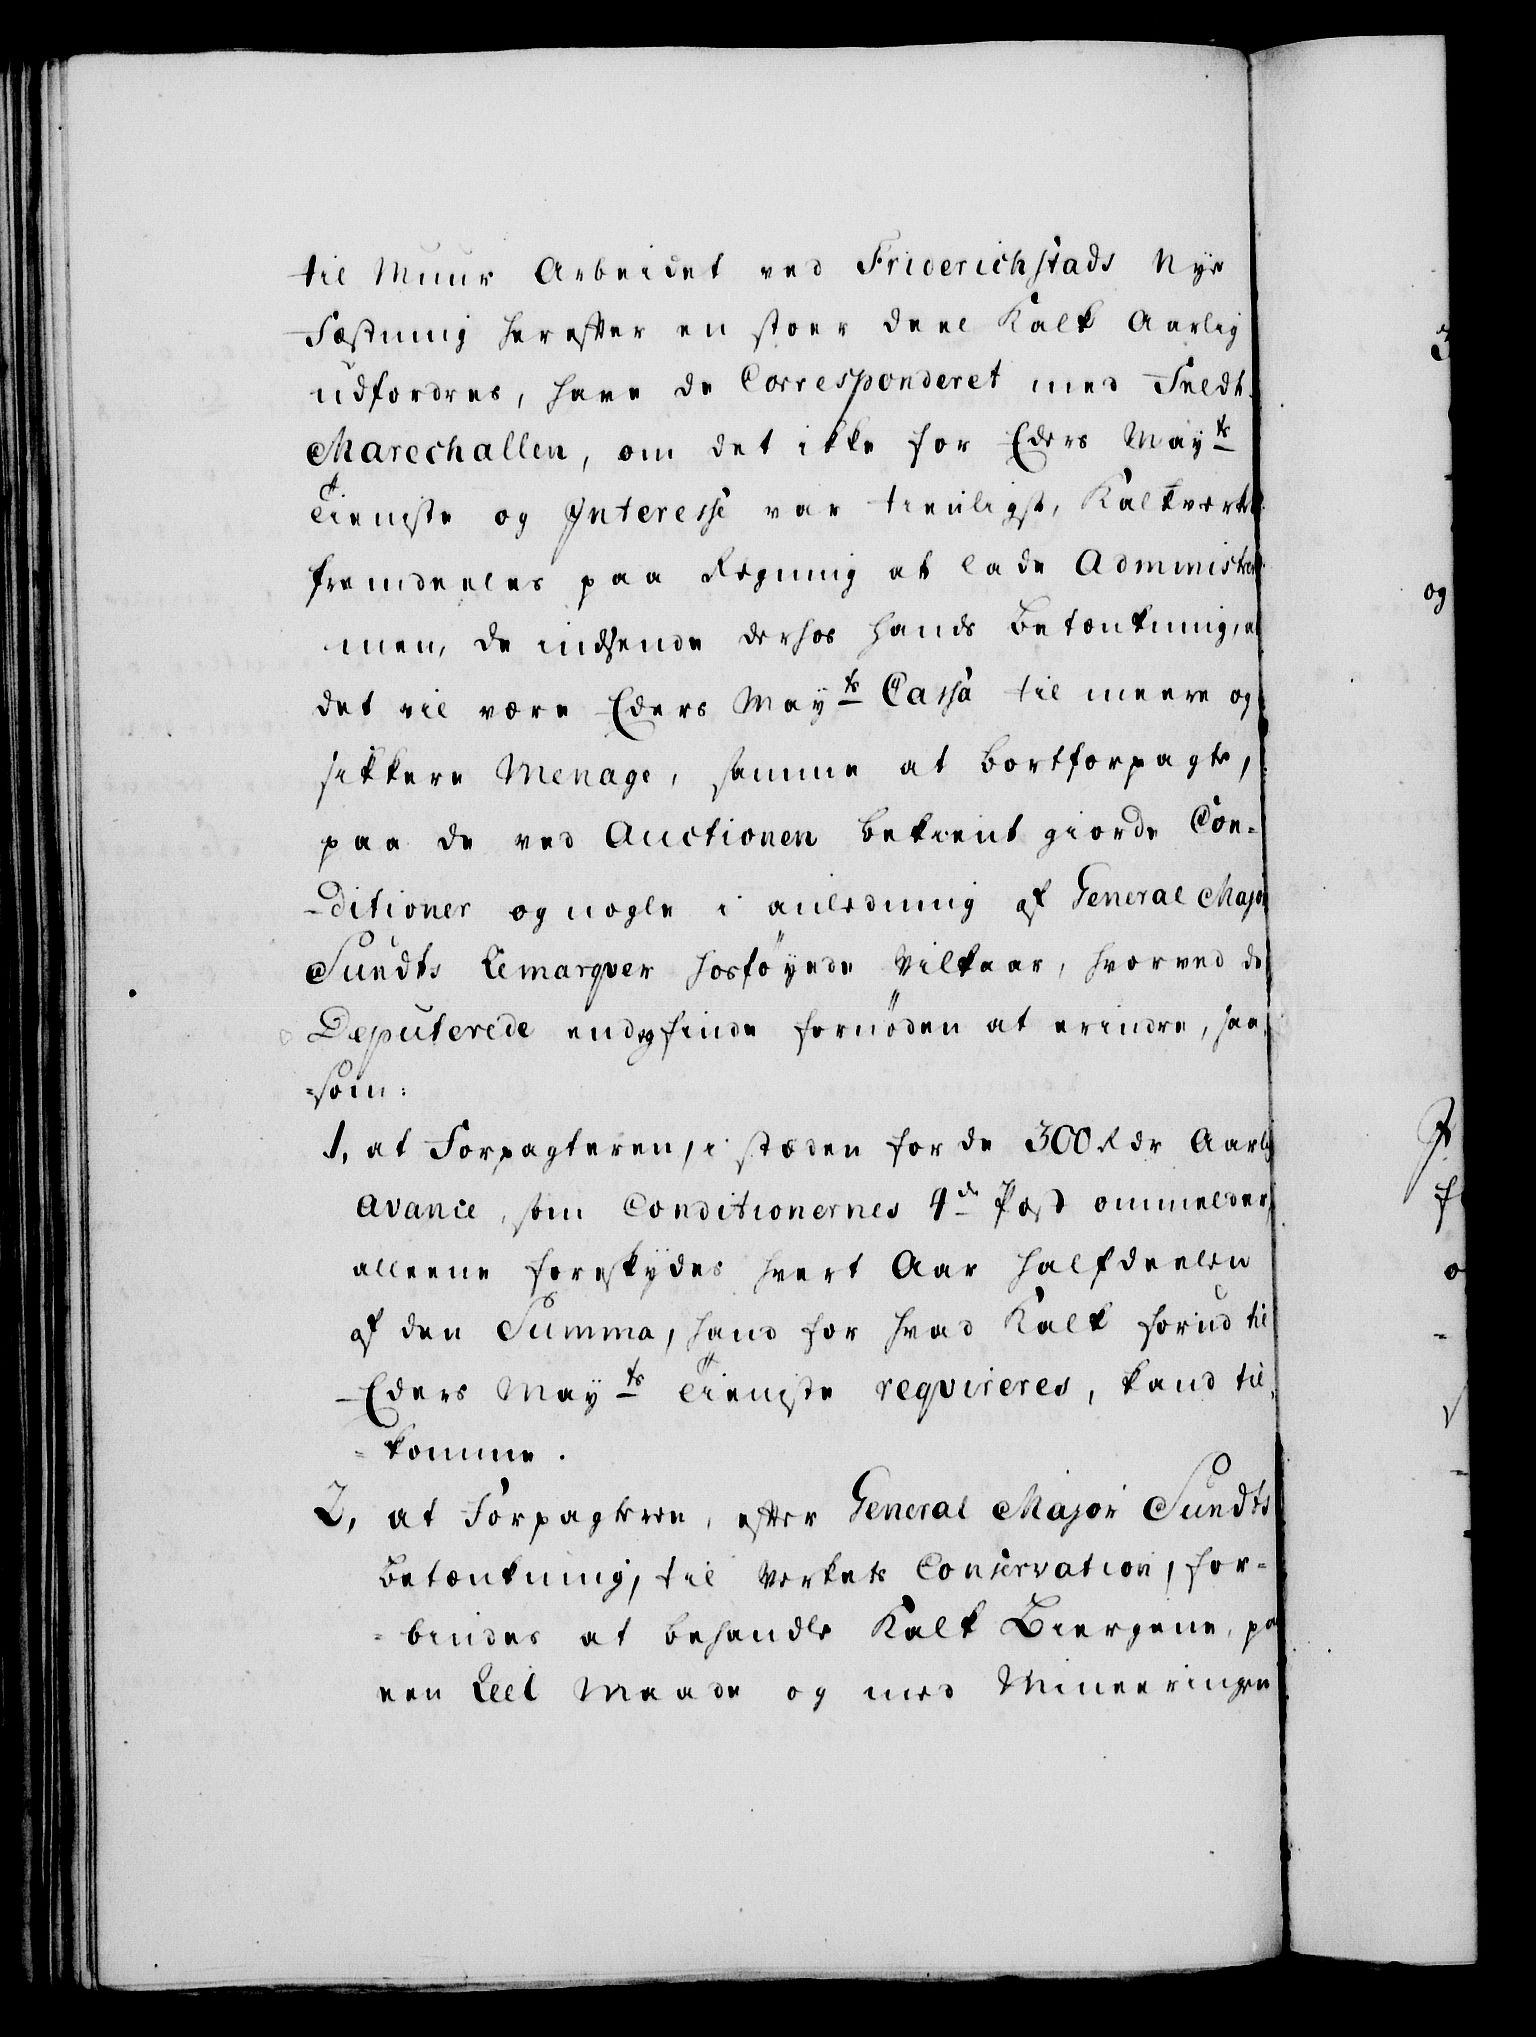 til Muur Arbeidet ved Friderichstads Nye
Fæstning herefter en stoer deel Kalk Aarlig
udfordres, have de Corresponderet med Feldt-
Marechallen, om det ikke for Eders Mayts
Tieniste og Interesse var tienligst, Kalkverket
fremdeeles paa Regning at lade Administrere
men, de indsende derhos hands Betænkning, at
det vil være Eders Mayts Cassa til meere og
sikkere Menage, samme at bortforpagte,
paa de ved Auctionen bekient giorde Con-
-ditioner og nogle i anledning af General Major
Sundts Remarqver hosföyede Vilkaar, hvorved de
Deputerede endog finde fornöden at erindre, saa-
=som:
1, at Forpagteren, i stæden for de 300 Rdr Aarlig
Avance, som Conditionernes 4de Post ommelder,
alleene foreskydes hvert Aar halfdeelen
af den Summa, hand for hvad Kalk forud til
Eders Mayts Tieniste reqvireres, kand til-
=komme.
2, at Forpagteren, efter General Major Sundts
Betænkning, til Verkets Conservation, for-
=bindes at behandle Kalk Biergene, paa
een Reel Maade og med Mineeringen